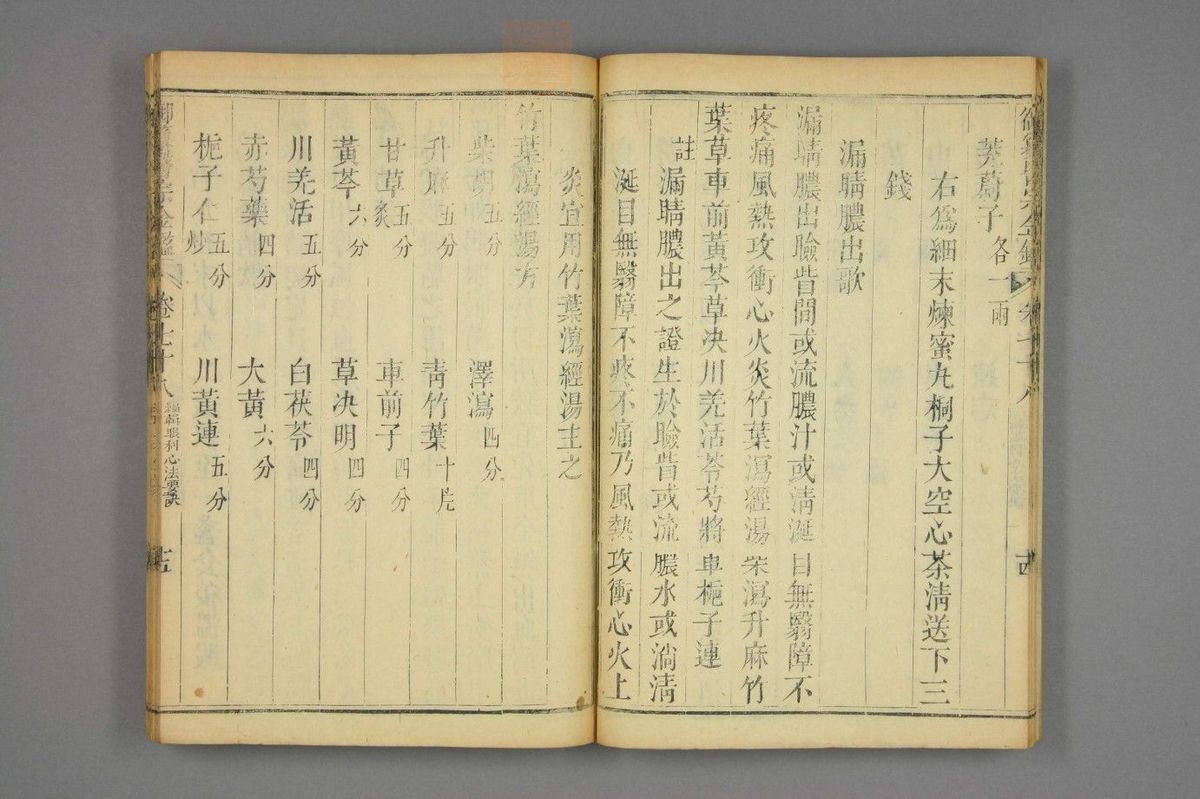 茺蔚子各一兩
右爲細末煉蜜丸桐子大空心茶清送下三
錢
漏睛膿出歌
漏睛膿出瞼眥間或流膿汁或淸涎目無翳障不
疼痛風熱攻衝心火炎竹葉瀉經湯柴瀉升麻竹
葉草車前黃芩草决川羌活苓芍將軍梔子連
註漏睛膿出之證生於瞼眥或流膿水或淌淸
涎目無翳障不疼不痛乃風熱攻衝心火上
炎宜用竹葉瀉經湯主之
竹葉瀉經湯方
柴胡五分 澤瀉四分
升麻五分 靑竹葉十片
甘草炙五分 車前子四分
黃芩六分 草决明四分
川羌活五分 白茯苓四分
赤芍藥四分 大黃六分
梔子仁炒五分 川黃連五分
御纂醫宗金鑑 卷七十八 編輯眼科心法要訣